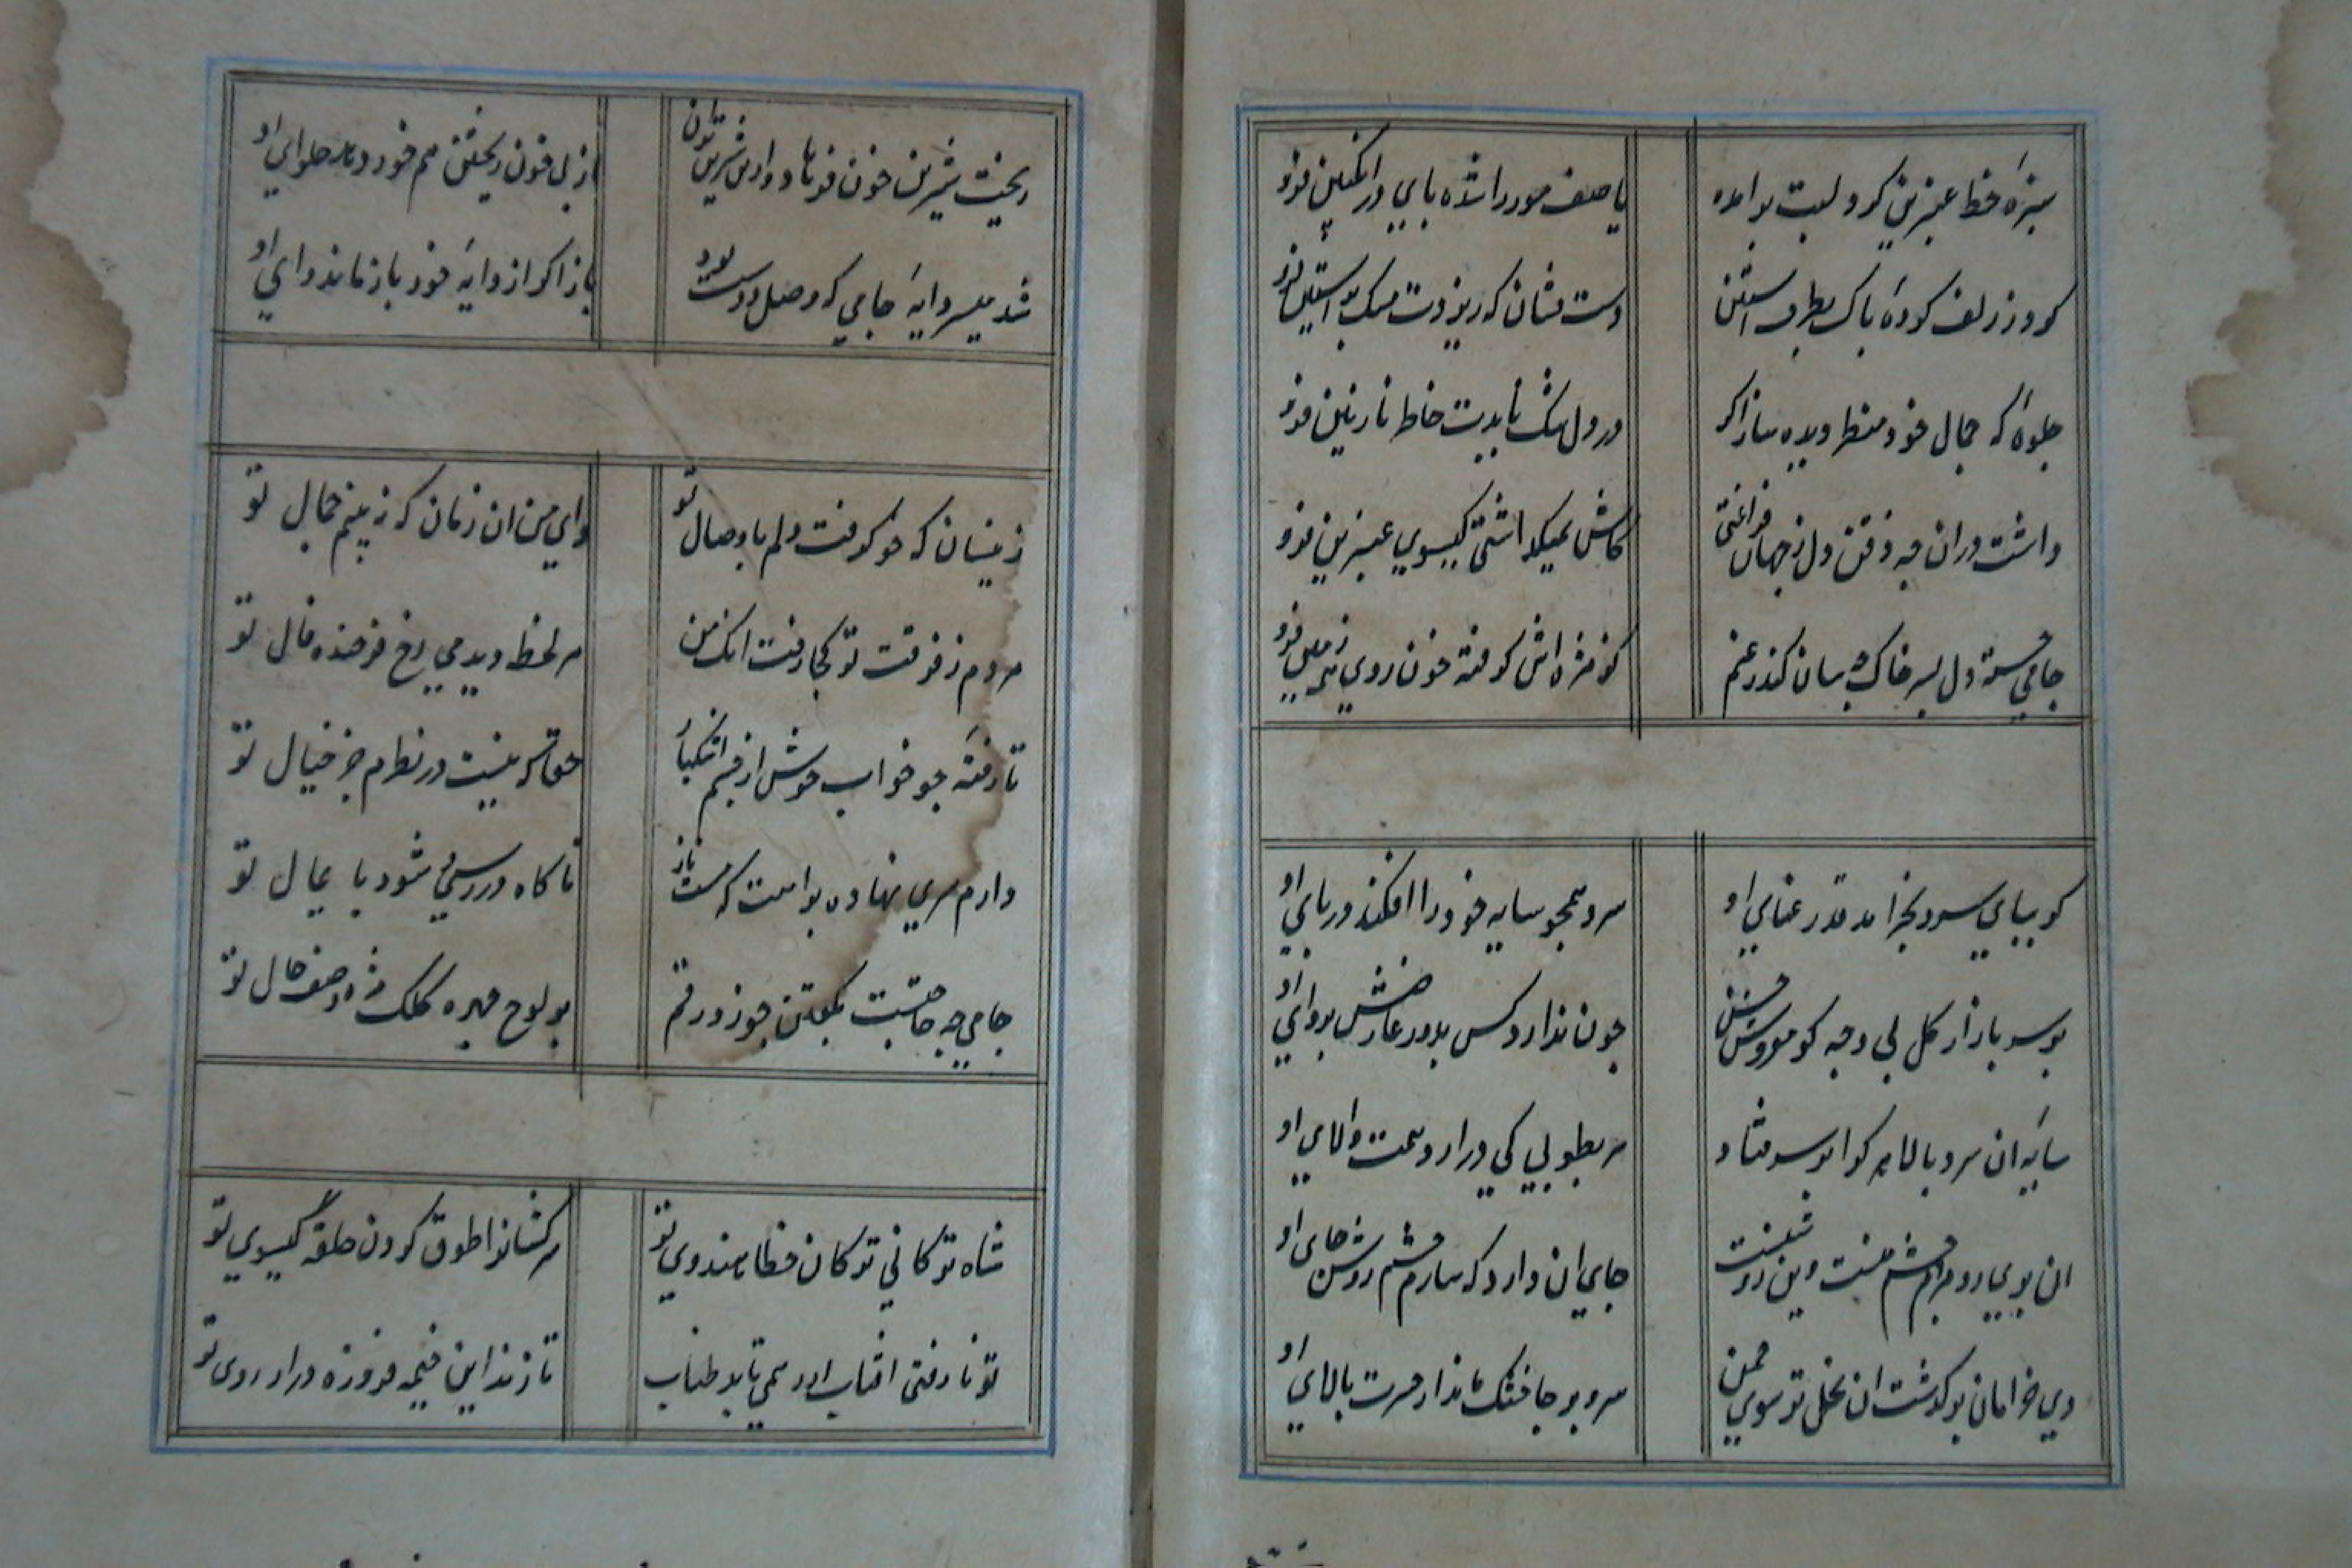 سبزه خط عنبرین گرد لبت برآمده
یا صف مور را شده پای در انگبین فرو
کرد ز زلف کرده پاک بطرف آستین
دست فشان که ریزدت مشک بو آستین فرو
جلوه که جمال خود منظر دیده ساز اگر
در دل تنگ نایدت خاطر نازنین فرو
داشت دران چه ذقن دل ز جهان فراغتی
کاش نمیکذاشتی کیسوی عنبرین فرو
جامی خسته دل بسر خاک بسان کند ز غم
کز مژه اش گرفته خون روی زمین فرو
گر بپای سرو بخرامد قد رعنای او
سرو همچو سایه خود را افکند در پای او
بر سر بازار گل بی وجه کو مفروش حسن
چون ندارد کس بدور عارضش پروای او
سایه آن سرو بالا هر کرا بر سر فتاد
سر بطوبی کی درآرد همت والای او
جای آن دارد که سازم چشم روشن جای او
دی خرامان برگذشت آن نخل تر سوی چمن
سرو بر جا خشک ماند از حسرت بالای او
ریخت شیرین خون فرهاد و ازین شیرین تر آن
از پی خون ریختن هم خورد حلوای او
شد میسر دایه جامی که وصل دوست بود
باز اگر از دایه خود باز ماند وای او
زینسان که خو گرفت دلم با وصال تو
وای من آن زمان که نبینم جمال تو
مردم ز فرقت تو کجا رفت آنک من
هر لحظه دیدمی رخ فرخنده فال تو
تا رفته چو خواب خوش از چشم اشکبار
حقا که نیست در نظرم جز خیال تو
دارم سری نهاده براهت که مست ناز
ناگاه در رسی شود پایمال تو
جامی چه حاجتست بگفتن چو زد رقم
بر لوح چهره کلک مژه وصف حال تو
شاه ترکانی ترکان خطا هندوی تو
سرکشانرا طوق گردن حلقه گیسوی تو
تو نا رفتی آفتاب آورد همی تابد طناب
تا زند این خیمه فیروزه در اردوی تو